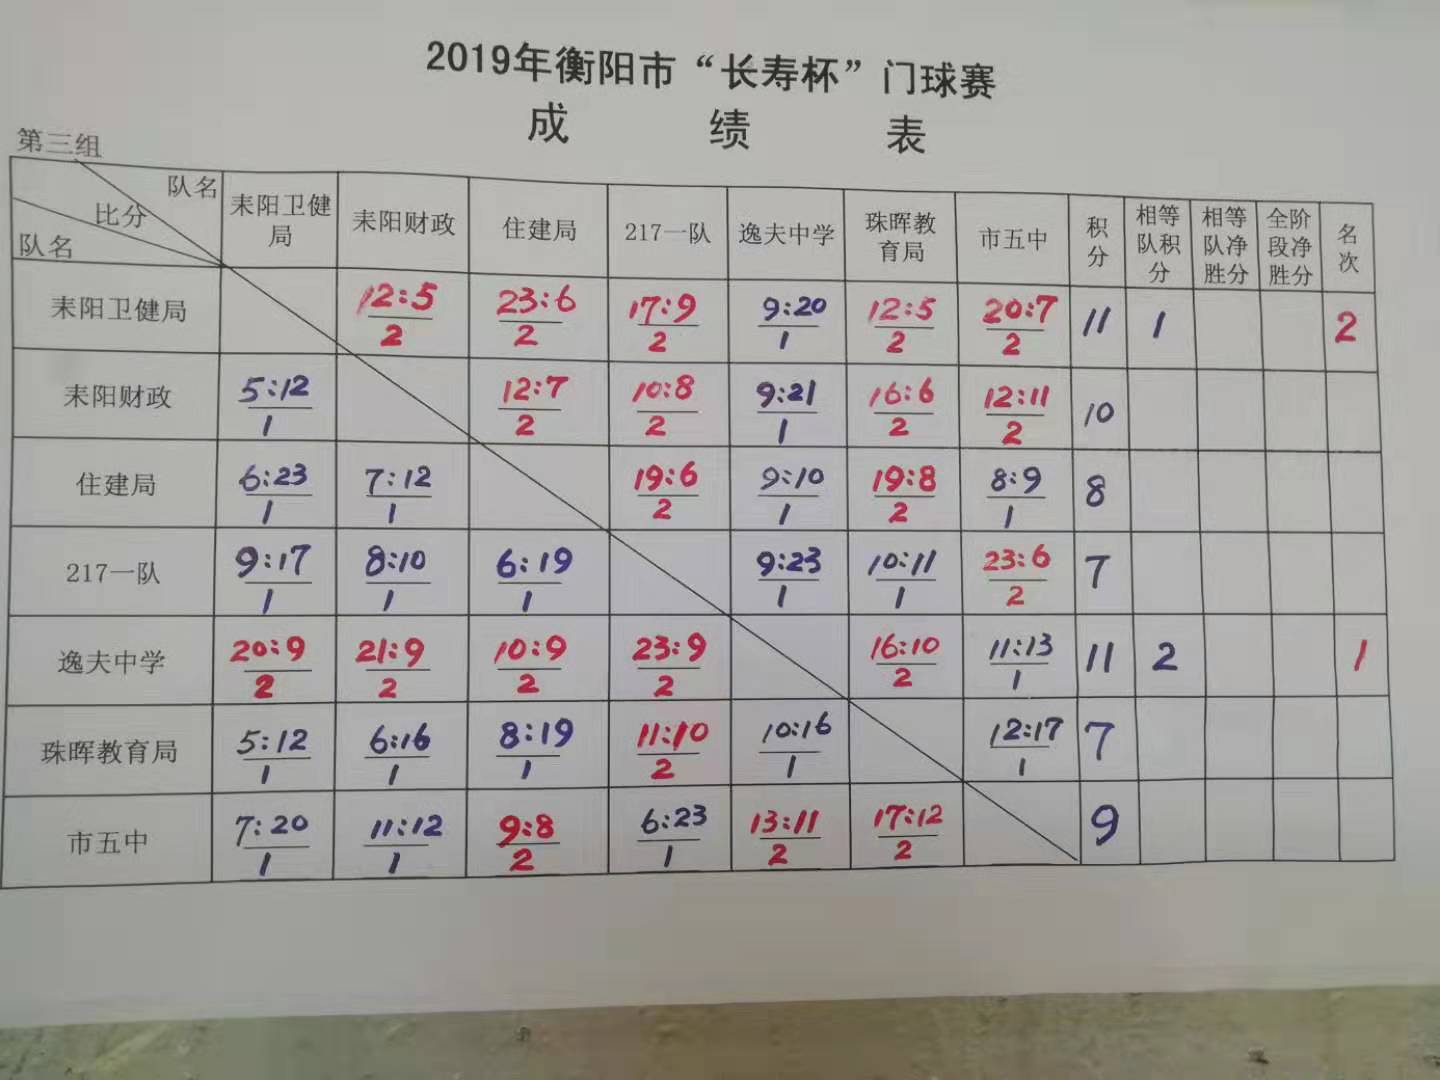 2019年衡阳市“长寿杯”门球赛
成 绩 表
第三组
队名 比分 队名 耒阳卫健局 耒阳财政 住建局 217一队 逸夫中学 珠晖教育局 市五中 积分 相等队积分 相等队净胜分 全阶段净胜分 名次
耒阳卫健局 12:5 23:6 17:9 9:20 12:5 20:7 11 1 2
2 2 2 1 2 2
耒阳财政 5:12 12:7 10:8 9:21 16:6 12:11 10
1 2 2 1 2 2
住建局 6:23 7:12 19:6 9:10 19:8 8:9 8
1 1 2 1 2 1
217一队 9:17 8:10 6:19 9:23 10:11 23:6 7
1 1 1 1 1 2
逸夫中学 20:9 21:9 10:9 23:9 16:10 11:13 11 2 1
2 2 2 2 2 1
珠晖教育局 5:12 6:16 8:19 11:10 10:16 12:17 7
1 1 1 2 1 1
市五中 7:20 11:12 9:8 6:23 13:11 17:12 9
1 1 2 1 2 2